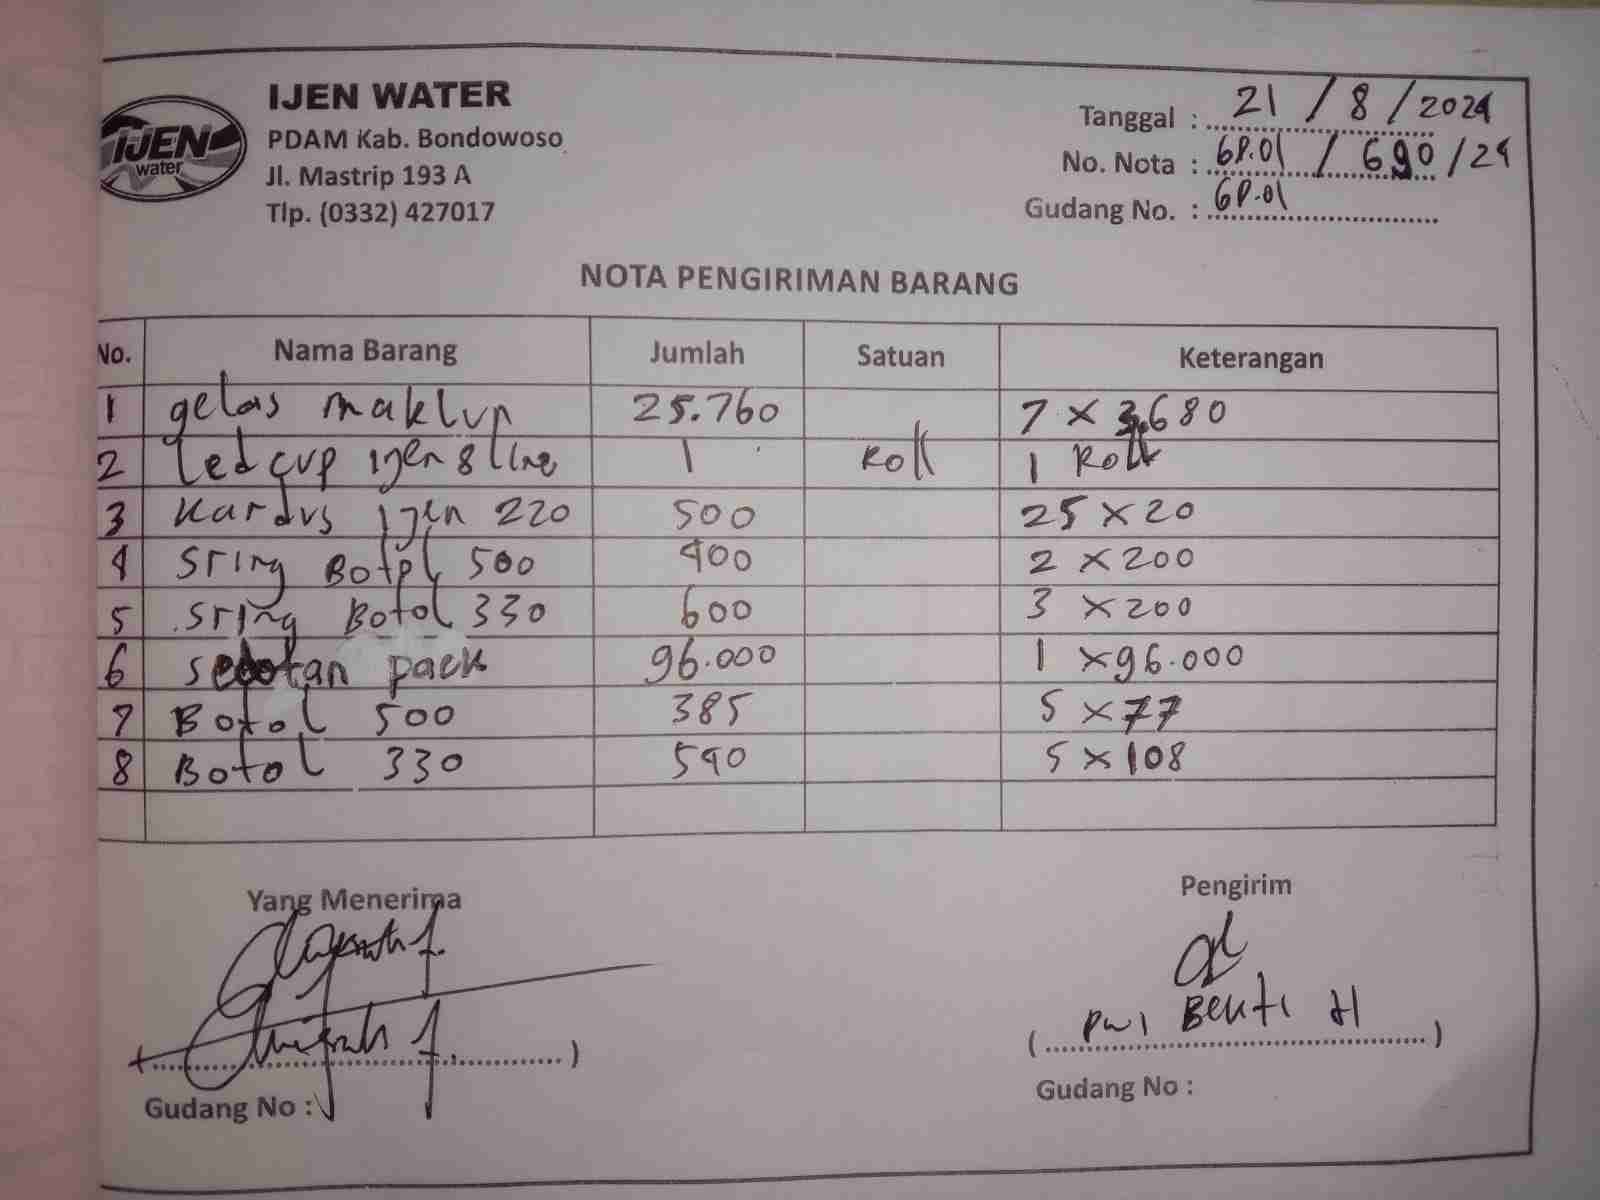 IJEN WATER
PDAM Kab. Bondowoso
Jl. Mastrip 193 A
Tlp. (0332) 427017
IJEN
water
Tanggal : 21 / 8 / 2024
No. Nota : GP.01 / 690 / 24
Gudang No. : GP.01
NOTA PENGIRIMAN BARANG
No. Nama Barang Jumlah Satuan Keterangan
1 gelas maklun 25.760 7 x 3.680
2 Led cup ijen 8 line 1 Roll 1 Roll
3 Kardus ijen 220 500 25 x 20
4 Sring Botol 500 400 2 x 200
5 Sring Botol 330 600 3 x 200
6 sedotan pack 96.000 1 x 96.000
7 Botol 500 385 5 x 77
8 Botol 330 540 5 x 108
Yang Menerima Pengirim
(....................) (Dwi Bekti H)
Gudang No : Gudang No :